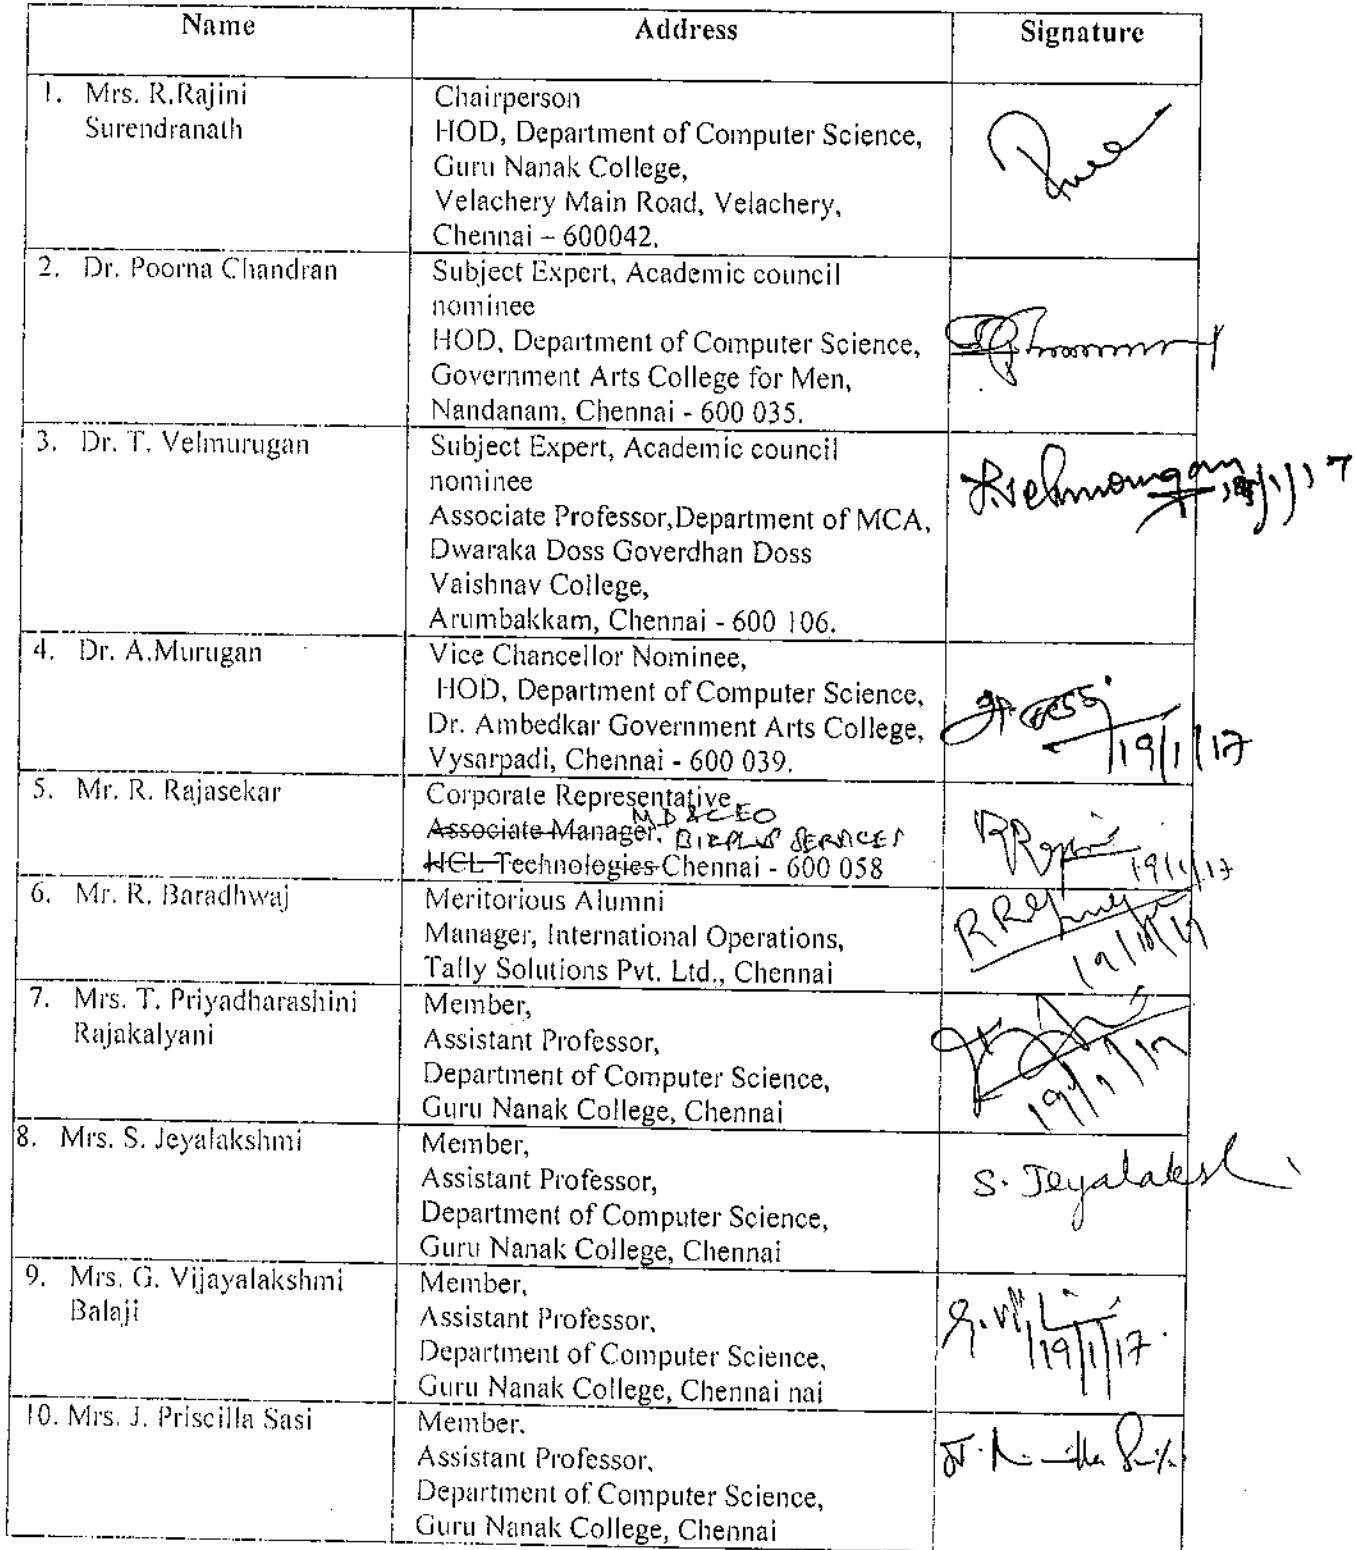 Name Address Signature
1. Mrs. R.Rajini
Surendranath
Chairperson
HOD, Department of Computer Science,
Guru Nanak College,
Velachery Main Road, Velachery,
Chennai – 600042.
2. Dr. Poorna Chandran
Subject Expert, Academic council
nominee
HOD, Department of Computer Science,
Government Arts College for Men,
Nandanam, Chennai - 600 035.
3. Dr. T. Velmurugan
Subject Expert, Academic council
nominee
Associate Professor,Department of MCA,
Dwaraka Doss Goverdhan Doss
Vaishnav College,
Arumbakkam, Chennai - 600 106.
4. Dr. A.Murugan
Vice Chancellor Nominee,
HOD, Department of Computer Science,
Dr. Ambedkar Government Arts College,
Vysarpadi, Chennai - 600 039.
19/1/17
5. Mr. R. Rajasekar
Corporate Representative
MD & CEO
Associate Manager, SERVICES
HCL Technologies Chennai - 600 058
19/1/17
6. Mr. R. Baradhwaj
Meritorious Alumni
Manager, International Operations,
Tally Solutions Pvt. Ltd., Chennai
7. Mrs. T. Priyadharashini
Rajakalyani
Member,
Assistant Professor,
Department of Computer Science,
Guru Nanak College, Chennai
19/1/17
8. Mrs. S. Jeyalakshmi
Member,
Assistant Professor,
Department of Computer Science,
Guru Nanak College, Chennai
S. Jeyalakshi
9. Mrs. G. Vijayalakshmi
Balaji
Member,
Assistant Professor,
Department of Computer Science,
Guru Nanak College, Chennai nai
19/1/17.
10. Mrs. J. Priscilla Sasi
Member.
Assistant Professor,
Department of Computer Science,
Guru Nanak College, Chennai